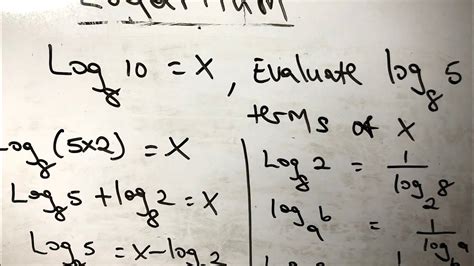 Logarithm
Log₈ 10 = X , Evaluate log₈ 5
terms of X
log₈ (5×2) = X
Log₈ 5 + log₈ 2 = X
Log₈ 5 = X - log₈ 2
Log₈ 2 = 1/log₂ 8
log_a b = 1/log_b a